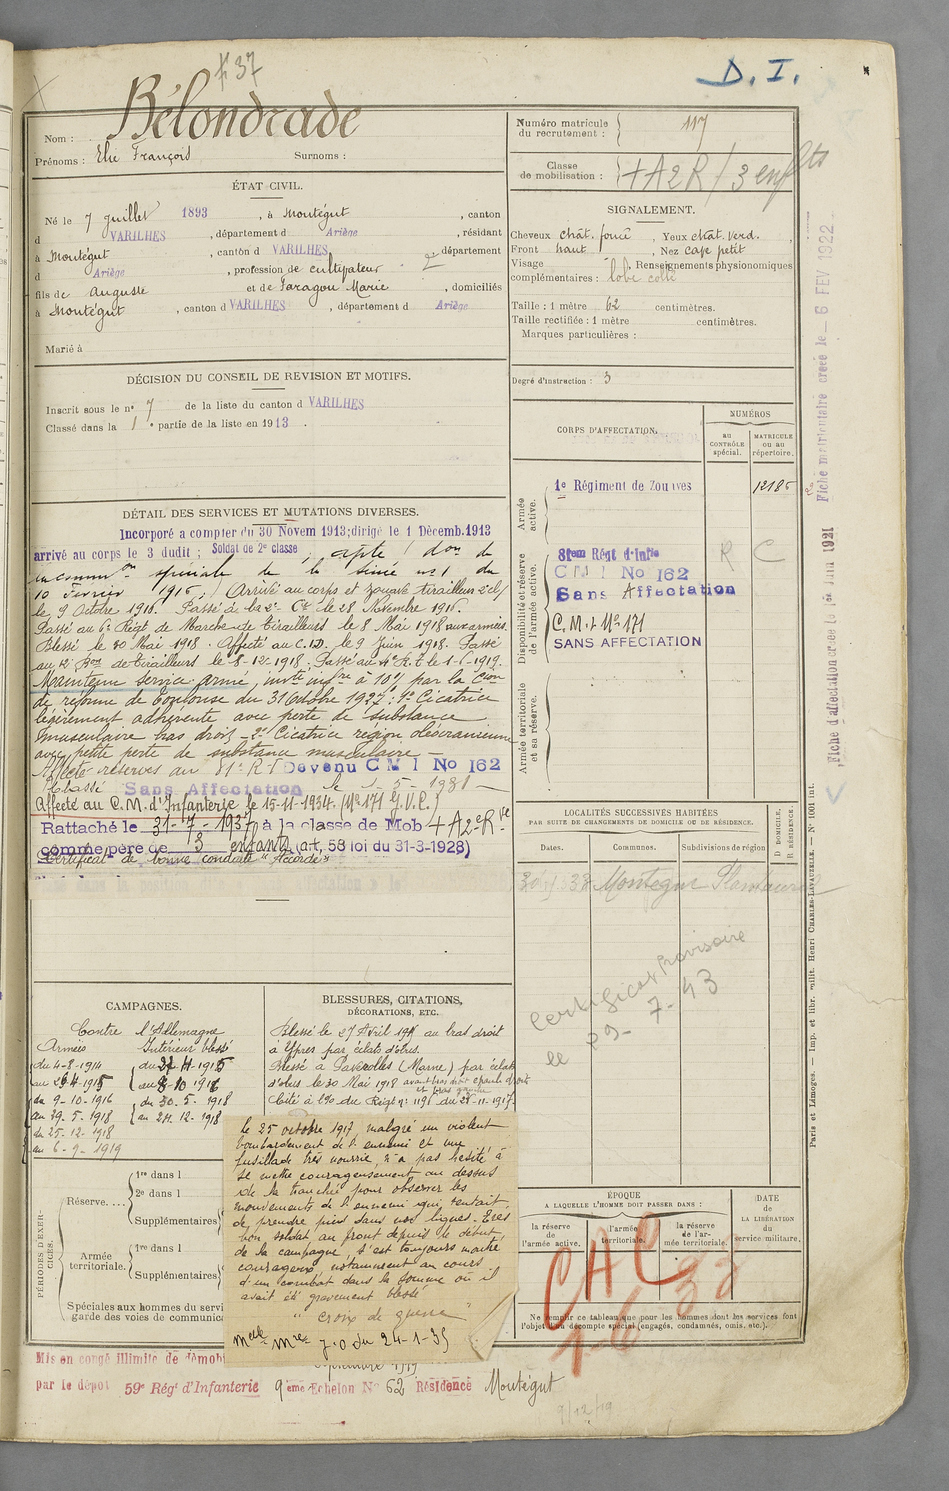 437
D. I.
Bélondrade
Nom :
Prénoms : Elie François
Surnoms :
Numéro matricule
du recrutement : 117
Classe
de mobilisation : +A2R / 3 enfts
ÉTAT CIVIL.
Né le 7 juillet 1893, à Montégut, canton
d VARILHES, département d Ariège, résidant
à Montégut, canton d VARILHES, département
d Ariège, profession de cultivateur
fils de Auguste et de Paragou Marie, domiciliés
à Montégut, canton d VARILHES, département d Ariège
Marié à
SIGNALEMENT.
Cheveux chât. foncé, Yeux chât. verd.
Front haut, Nez cave petit
Visage, Renseignements physionomiques
complémentaires : lobe collé
Taille : 1 mètre 62 centimètres.
Taille rectifiée : 1 mètre centimètres.
Marques particulières :
Degré d'instruction : 3
DÉCISION DU CONSEIL DE REVISION ET MOTIFS.
Inscrit sous le no 7 de la liste du canton d VARILHES
Classé dans la 1e partie de la liste en 1913.
CORPS D'AFFECTATION.
NUMÉROS
AU CONTRÔLE spécial.
MATRICULE ou au répertoire.
Armée active.
1e Régiment de Zouaves
12185
Disponibilité et réserve de l'armée active.
81em Régt d'Infie
R C
C M I No 162
Sans Affectation
C.M.I No 171
SANS AFFECTATION
Armée territoriale et sa réserve.
DÉTAIL DES SERVICES ET MUTATIONS DIVERSES.
Incorporé a compter du 30 Novem 1913; dirigé le 1 Décemb. 1913
arrivé au corps le 3 dudit ; Soldat de 2e classe, apte / don de
la commn on spéciale de la Seine no 1 du
10 Février 1916,) Arrivé au corps et Tirailleurs
le 9 Octobre 1916. Passé à la 2e Cie le 28 Novembre 1916.
Passé au 6e Régt de Marche de Tirailleurs le 8 Mai 1918 aux armées.
Blessé le 30 Mai 1918. Affecté au C.D. le 9 Juin 1918. Passé
au 12 Bon de Tirailleurs le 8-12-1918. Passé au 4e R.T. le 1-6-1919.
Maintenu service armé, invte infre à 10% par la Cion
de réforme de Toulouse du 31 Octobre 1927: 1o Cicatrice
légèrement adhérente avec perte de substance
musculaire bras droit - 2o Cicatrice région olécranienne
avec petite perte de substance musculaire -
Affecté réserves au 81e R.I Devenu C M I No 162
Classé Sans Affectation le 5-1931
Affecté au C.M. d'Infanterie le 15-11-1934. (No 171 G.V.C.)
Rattaché le 31-7-1937 à la classe de Mob +A2eRve
comme père de 3 enfants (art. 58 loi du 31-3-1928)
Certificat de bonne conduite "Accordé"
LOCALITÉS SUCCESSIVES HABITÉES
PAR SUITE DE CHANGEMENTS DE DOMICILE OU DE RÉSIDENCE.
Dates.
Communes.
Subdivisions de région
D DOMICILE.
R RÉSIDENCE.
Montégut Plantaurel
Certificat Provisoire
le 29-7-43
CAMPAGNES.
Contre l'Allemagne
Armées
du 4-8-1914
au 26-4-1915
du 9-10-1916
au 29.5-1918
du 25-12-1918
au 6-9-1919
Intérieur blessé
du 27-4-1915
au 8-10-1916
du 30.5-1918
au 24.12-1918
BLESSURES, CITATIONS,
DÉCORATIONS, ETC.
Blessé le 27 Avril 1915 au bras droit
à Ypres par éclats d'obus.
Blessé à Faverolles (Marne) par éclats
d'obus le 30 Mai 1918 avant bras droit épaule droite
et bras gauche
Cité à l'o. du Régt no 1191 du 25-11-1917
le 25 octobre 1917, malgré un violent
bombardement de l'ennemi et une
fusillade très nourrie, n'a pas hésité à
se mettre courageusement au dessus
de la tranchée pour observer les
mouvements de l'ennemi qui tentait
de prendre pied dans nos lignes. Très
bon soldat au front depuis le début
de la campagne, s'est toujours montré
courageux, notamment au cours
d'un combat dans la Somme où il
avait été gravement blessé
"Croix de guerre"
Melle Mre J.O du 24-1-35
PÉRIODES D'EXERCICES.
Réserve....
1re dans l
2e dans l
Supplémentaires
Armée territoriale.
1re dans l
Supplémentaires
Spéciales aux hommes du servi
garde des voies de communica
ÉPOQUE
A LAQUELLE L'HOMME DOIT PASSER DANS :
la réserve de l'armée active.
l'armée territoriale.
la réserve de l'armée territoriale.
DATE DE LA LIBÉRATION du service militaire.
CAC
1-6 33
Ne remplir ce tableau que pour les hommes dont les services font
l'objet d'un décompte spécial (engagés, condamnés, omis, etc.).
Mis en congé illimité de démob
par le dépôt 59e Régt d'Infanterie 9eme Echelon No 62 Résidence Montégut
9/12/19
Fiche matriculaire créée le 6 FEV 1922
Fiche d'affectation créée le 1er Juin 1921
Paris et Limoges. — Imp. et libr. milit. Henri CHARLES-LAVAUZELLE. — No 1001 int.